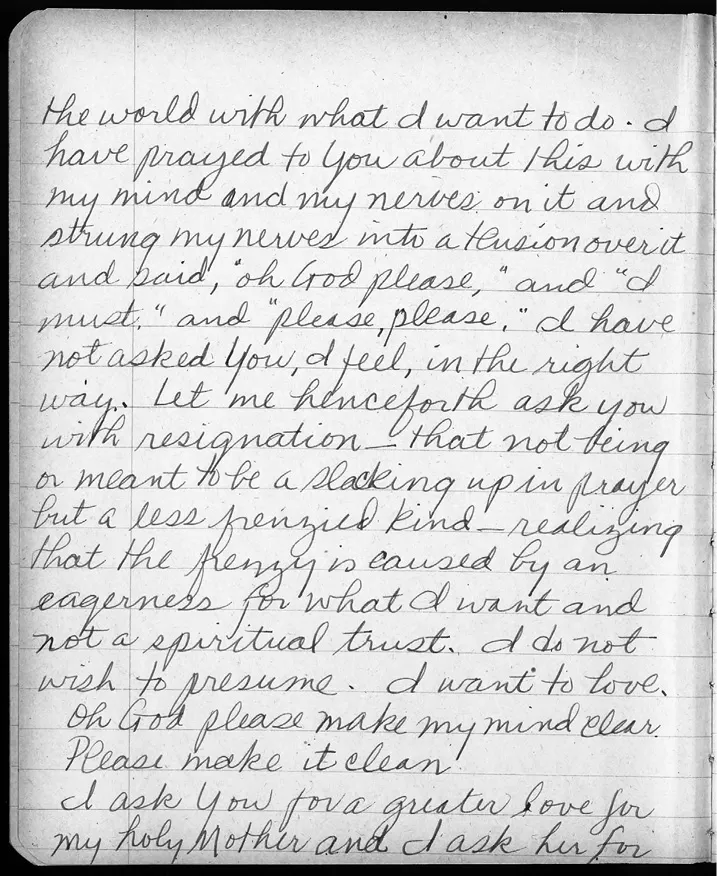 the world with what I want to do. I
have prayed to You about this with
my mind and my nerves on it and
strung my nerves into a tlusion over it
and said, "oh God please," and "I
must," and "please, please." I have
not asked You, I feel, in the right
way. Let me henceforth ask you
with resignation—that not being
or meant to be a slacking up in prayer
but a less frenzied kind—realizing
that the frenzy is caused by an
eagerness for what I want and
not a spiritual trust. I do not
wish to presume. I want to love.
Oh God please make my mind clear.
Please make it clean
I ask You for a greater love for
my holy Mother and I ask her for